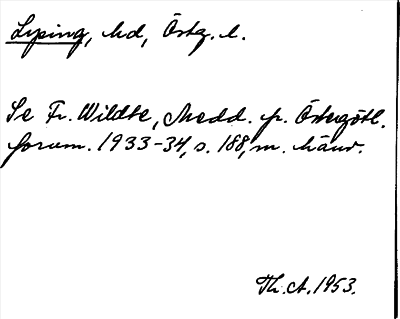 Lysing, hd, Östg. l.
Se Fr. Wildte, Medd. fr. Östergötl.
fornm. 1933-34, s. 188, m. hänv.
Th. A. 1953.